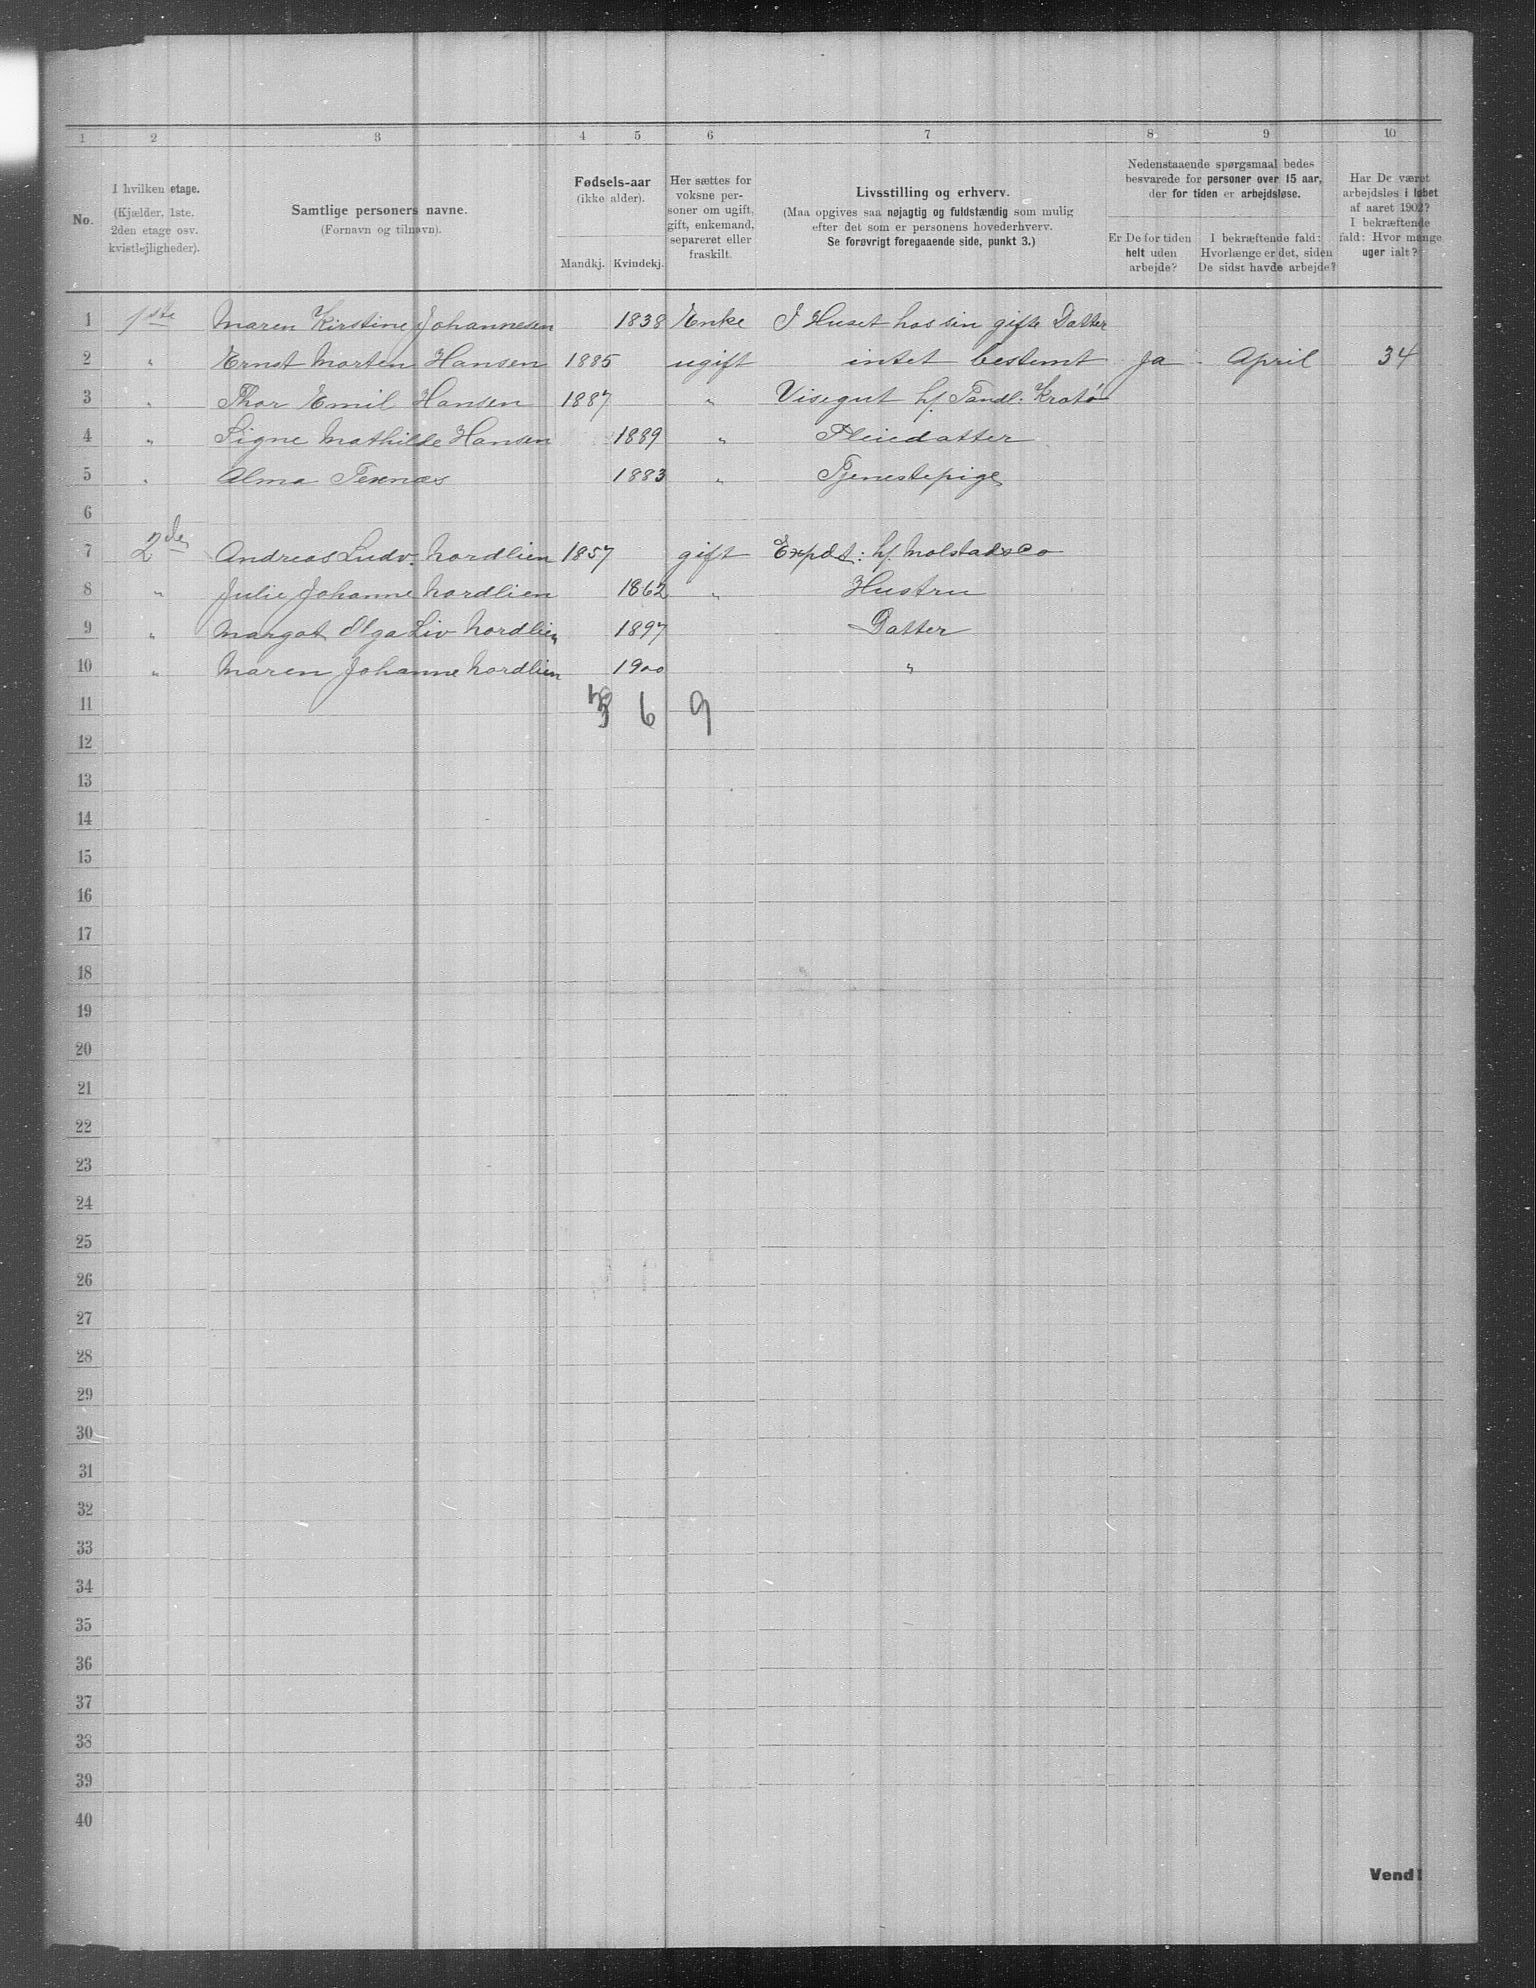 1 2 3 4 5 6 7 8 9 10
No.
I hvilken etage.
(Kjælder, 1ste.
2den etage osv.
kvistlejligheder).
Samtlige personers navne.
(Fornavn og tilnavn).
Fødsels-aar
(ikke alder).
Mandkj. Kvindekj.
Her sættes for
voksne per-
soner om ugift,
gift, enkemand,
separeret eller
fraskilt.
Livsstilling og erhverv.
(Maa opgives saa nøjagtig og fuldstændig som mulig
efter det som er personens hovederhverv.
Se forøvrigt foregaaende side, punkt 3.)
Nedenstaaende spørgsmaal bedes
besvarede for personer over 15 aar,
der for tiden er arbejdsløse.
Er De for tiden
helt uden
arbejde?
I bekræftende fald:
Hvorlænge er det, siden
De sidst havde arbejde?
Har De været
arbejdsløs i løbet
af aaret 1902?
I bekræftende
fald: Hvor mange
uger ialt?
1 1ste Maren Kirstine Johannesen 1838 Enke I Huset hos sin gifte Datter
2 " Ernst Morten Hansen 1885 ugift intet bestemt Ja April 34
3 " Thor Emil Hansen 1887 " Visegut hf. Tandl.
4 " Signe Mathilde Hansen 1889 " Pleiedatter
5 " Alma 1883 " Tjenestepige
6
7 2de Andreas Ludv. Nordlien 1857 gift Expdt: hf. Molstad & Co
8 " Julie Johanne Nordlien 1862 " Hustru
9 " Margot Olga Liv Nordlien 1897 Datter
10 " Maren Johanne Nordlien 1900 "
11 3 6 9
12
13
14
15
16
17
18
19
20
21
22
23
24
25
26
27
28
29
30
31
32
33
34
35
36
37
38
39
40
Vend!